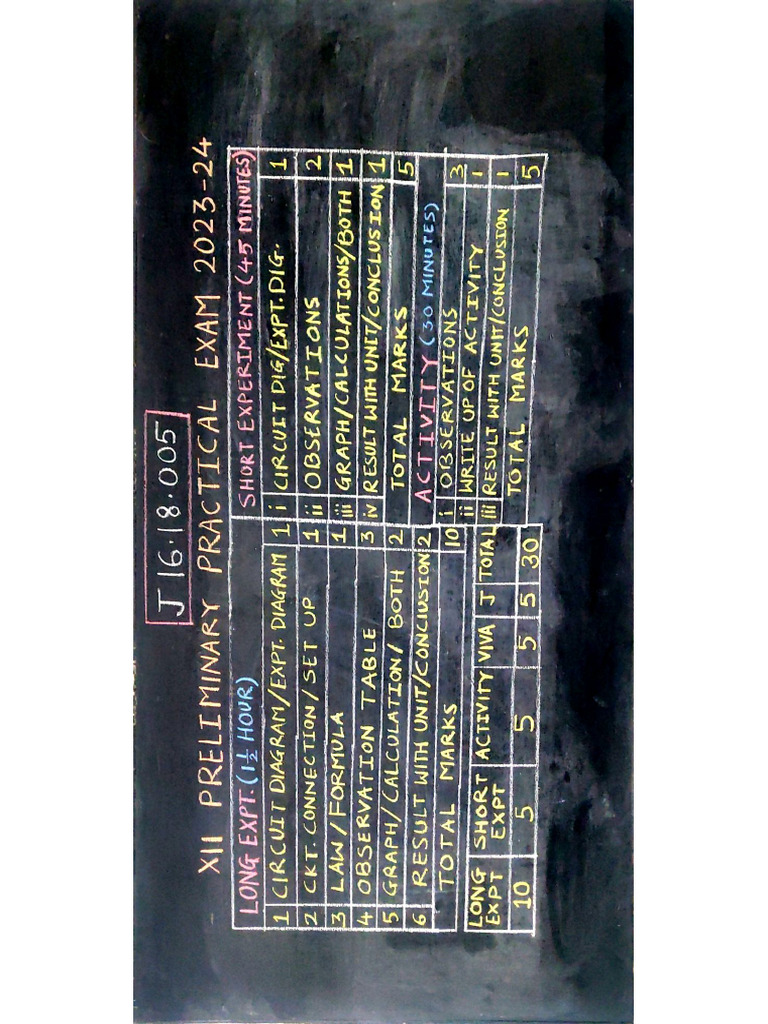 J 16.18.005
XII PRELIMINARY PRACTICAL EXAM 2023-24
LONG EXPT. (1½ HOUR)
1 CIRCUIT DIAGRAM/EXPT. DIAGRAM 1
2 CKT. CONNECTION/SET UP 1
3 LAW/FORMULA 1
4 OBSERVATION TABLE 3
5 GRAPH/CALCULATION/BOTH 2
6 RESULT WITH UNIT/CONCLUSION 2
TOTAL MARKS 10
SHORT EXPERIMENT (45 MINUTES)
i CIRCUIT DIG/EXPT.DIG. 1
ii OBSERVATIONS 2
iii GRAPH/CALCULATIONS/BOTH 1
iv RESULT WITH UNIT/CONCLUSION 1
TOTAL MARKS 5
ACTIVITY (30 MINUTES)
i OBSERVATIONS 3
ii WRITE UP OF ACTIVITY 1
iii RESULT WITH UNIT/CONCLUSION 1
TOTAL MARKS 5
LONG EXPT SHORT EXPT ACTIVITY VIVA J TOTAL
10 5 5 5 5 30